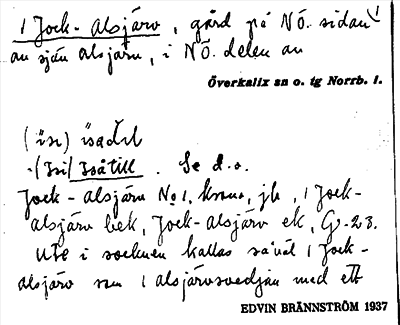 1 Jock-alsjärv, gård på NÖ. sidan
av sjön alsjärv, i NÖ. delen av
Överkalix sn o. tg Norrb. l.
Se d.o.
Jock-alsjärv No 1, krono, jb, 1 Jock-
alsjärv bek, Jock-alsjärv ek, G-23.
Ute i socknen kallas såväl 1 Jock-
alsjärv som 1 alsjärvsvedjan med ett
EDVIN BRÄNNSTRÖM 1937